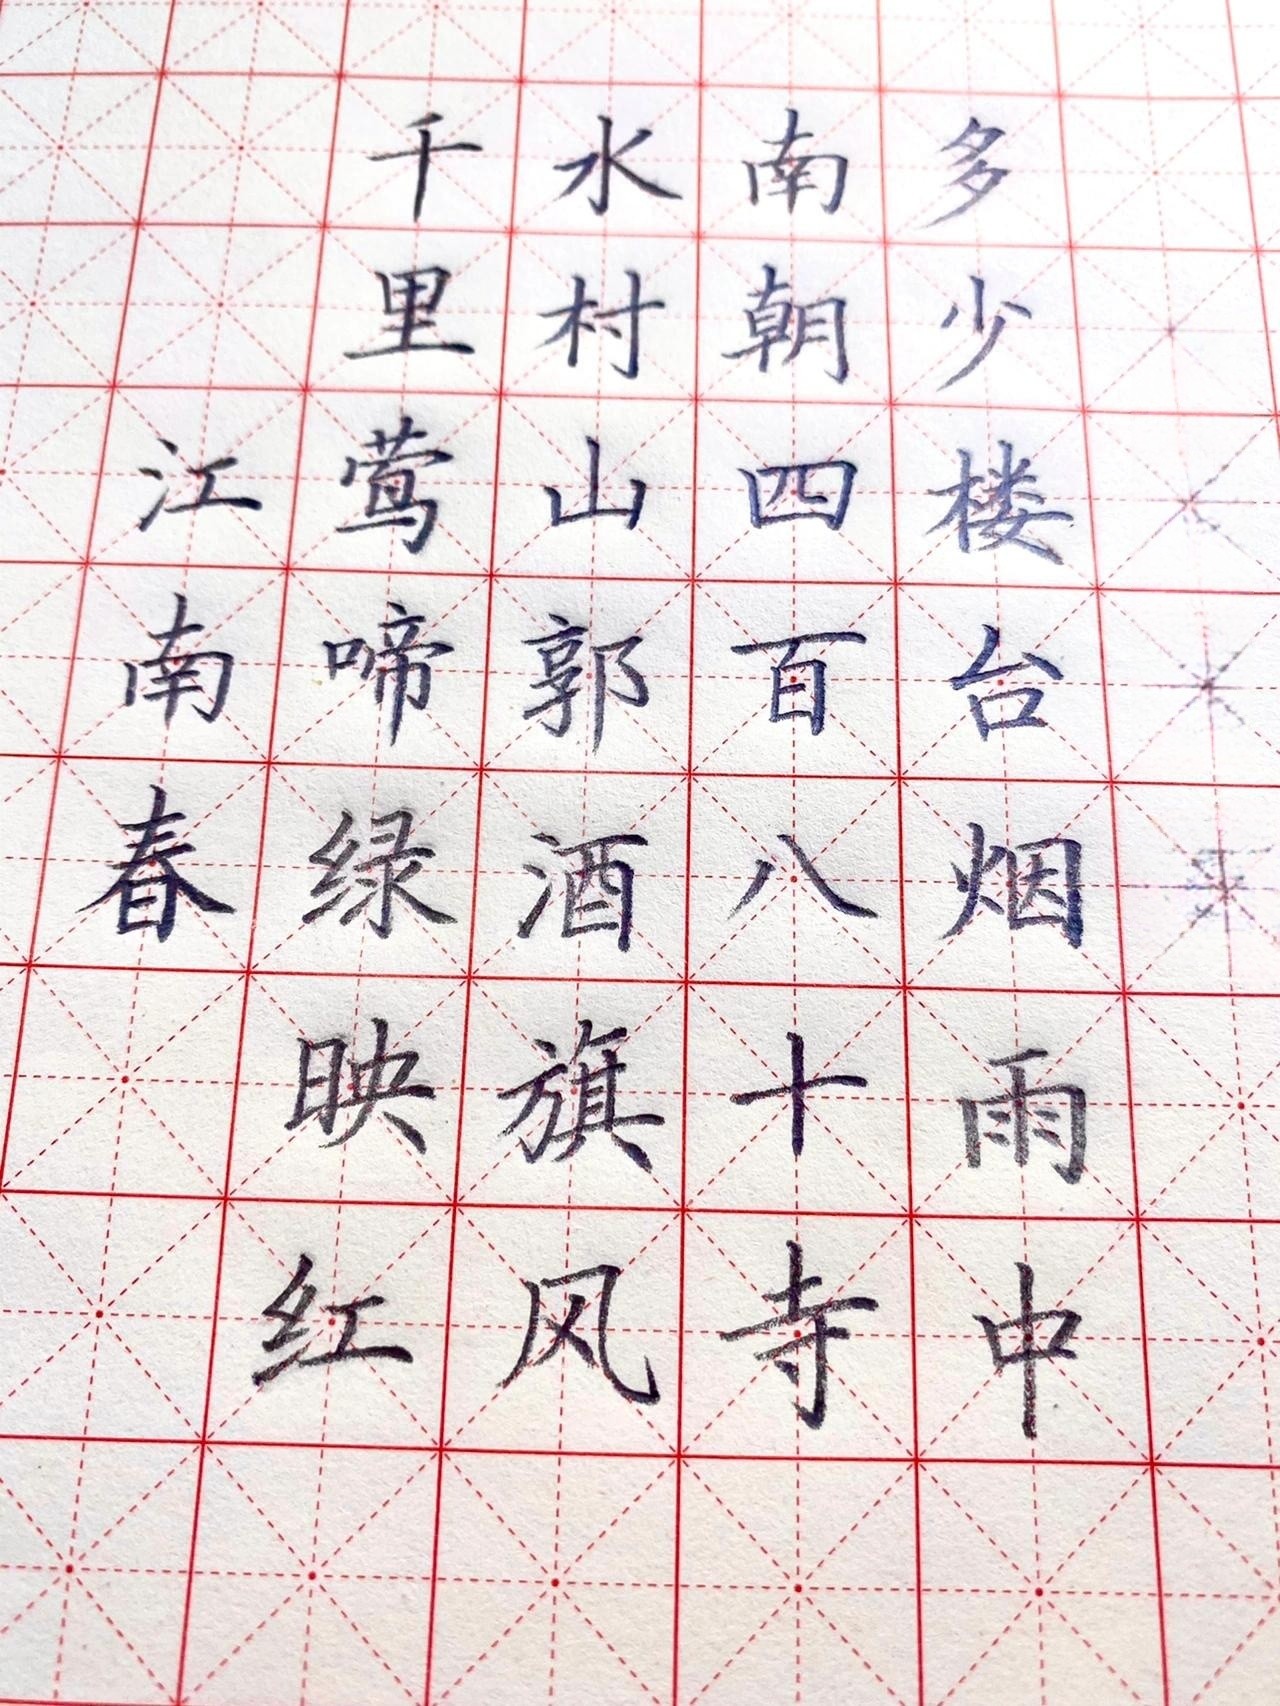 江南春
千里莺啼绿映红
水村山郭酒旗风
南朝四百八十寺
多少楼台烟雨中